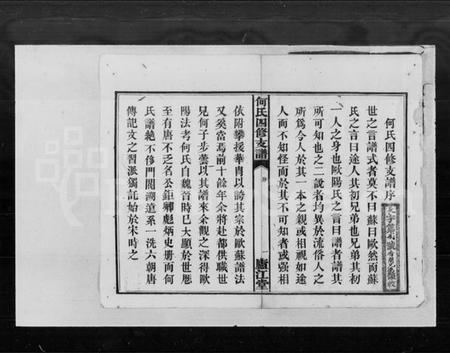 何氏四修支譜序
世之言譜式者莫不曰蘇曰歐然而蘇
氏之言曰途人其初兄弟也兄弟其初
一人之身也歐陽氏之言曰譜者譜其
所可知也之二說者均異於流俗人之
所為今人於其一本之親或相視如途
人而不知怪而於其不可知者或强相
何氏四修支譜
序
一
廬江堂
依附攀援華胄以誇其宗於歐蘇譜法
又奚當焉前十餘年余將赴都供職世
兄何子步雲以其譜來余觀之深得歐
陽法考何氏自魏晉時已大顯於世歷
至有唐不乏名公鉅卿彪炳史册而何
氏譜絕不侈門閥溯遠系一洗六朝唐
傳記文之習派獨託始於宋時之